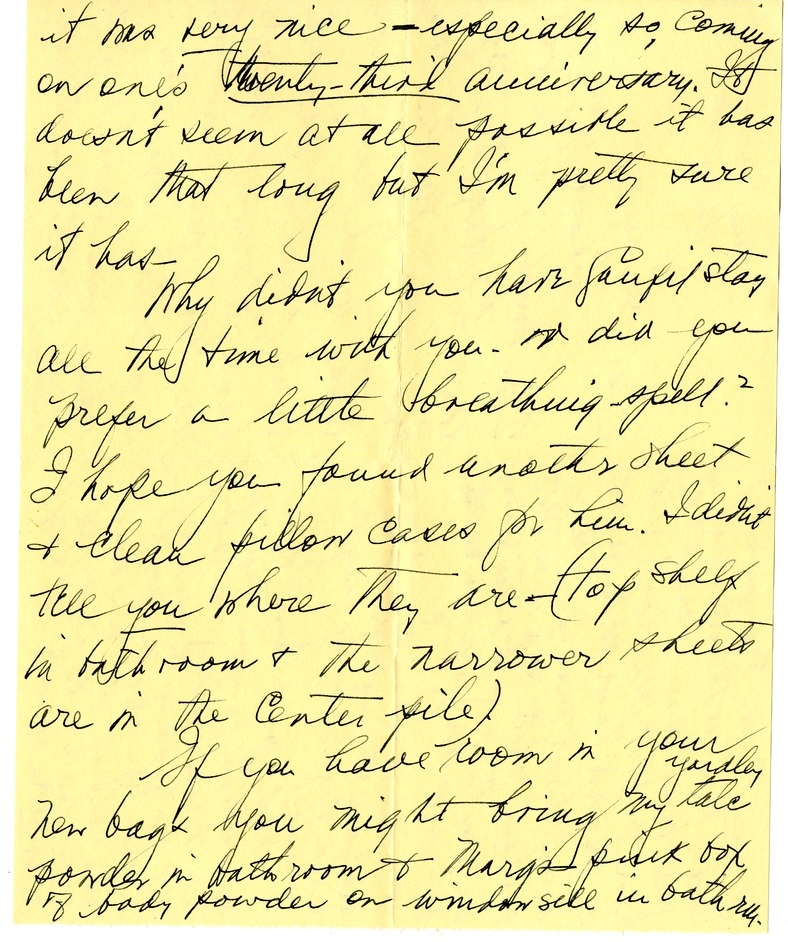 it was very nice - especially so, coming
on one's twenty-third anniversary. It
doesn't seem at all possible it has
been that long but I'm pretty sure
it has -
Why didn't you have stay
all the time with you - or did you
prefer a little breathing-spell?
I hope you found another sheet
& clean pillow cases for him. I didn't
tell you where they are - (top shelf
in bathroom & the narrower sheets
are in the center pile)
If you have room in your
yardley
new bags you might bring my talc
powder in bathroom & Marg's pink box
of body powder on windowsill in bathrm.